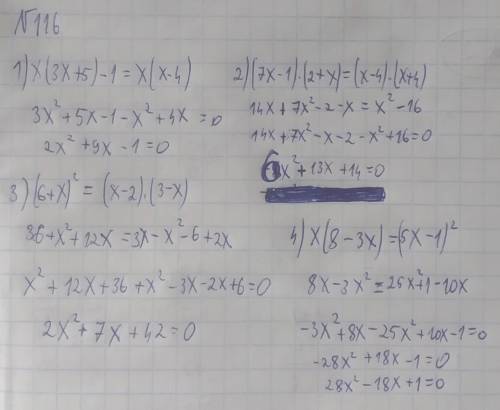 №116
1) x(3x+5)-1=x(x-4)
3x²+5x-1-x²+4x=0
2x²+9x-1=0
2) (7x-1)·(2+x)=(x-4)·(x+4)
14x+7x²-2-x=x²-16
14x+7x²-x-2-x²+16=0
6x²+13x+14=0
3) (6+x)²=(x-2)·(3-x)
36+x²+12x=3x-x²-6+2x
x²+12x+36+x²-3x-2x+6=0
2x²+7x+42=0
4) x(8-3x)=(5x-1)²
8x-3x²=25x²+1-10x
-3x²+8x-25x²+10x-1=0
-28x²+18x-1=0
28x²-18x+1=0